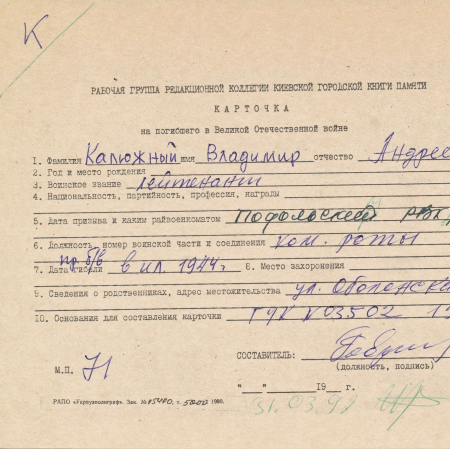 К
РАБОЧАЯ ГРУППА РЕДАКЦИОННОЙ КОЛЛЕГИИ КИЕВСКОЙ ГОРОДСКОЙ КНИГИ ПАМЯТИ
КАРТОЧКА
на погибшего в Великой Отечественной войне
1. Фамилия Калюжный имя Владимир отчество Андрее
2. Год и место рождения
3. Воинское звание лейтенант
4. Национальность, партийность, профессия, награды
5. Дата призыва и каким райвоенкоматом Подольский РВК
6. Должность, номер воинской части и соединения ком. роты
пр. б/в
7. Дата гибели в ил. 1944 г. 8. Место захоронения
9. Сведения о родственниках, адрес местожительства ул. Оболонска
10. Основания для составления карточки ГУК № 03502
СОСТАВИТЕЛЬ:
(должность, подпись)
М.П. 71
" " 19 г.
31.03.92
РАПО «Укрвузполиграф». Зак. № 15490, т. 5000 1990.